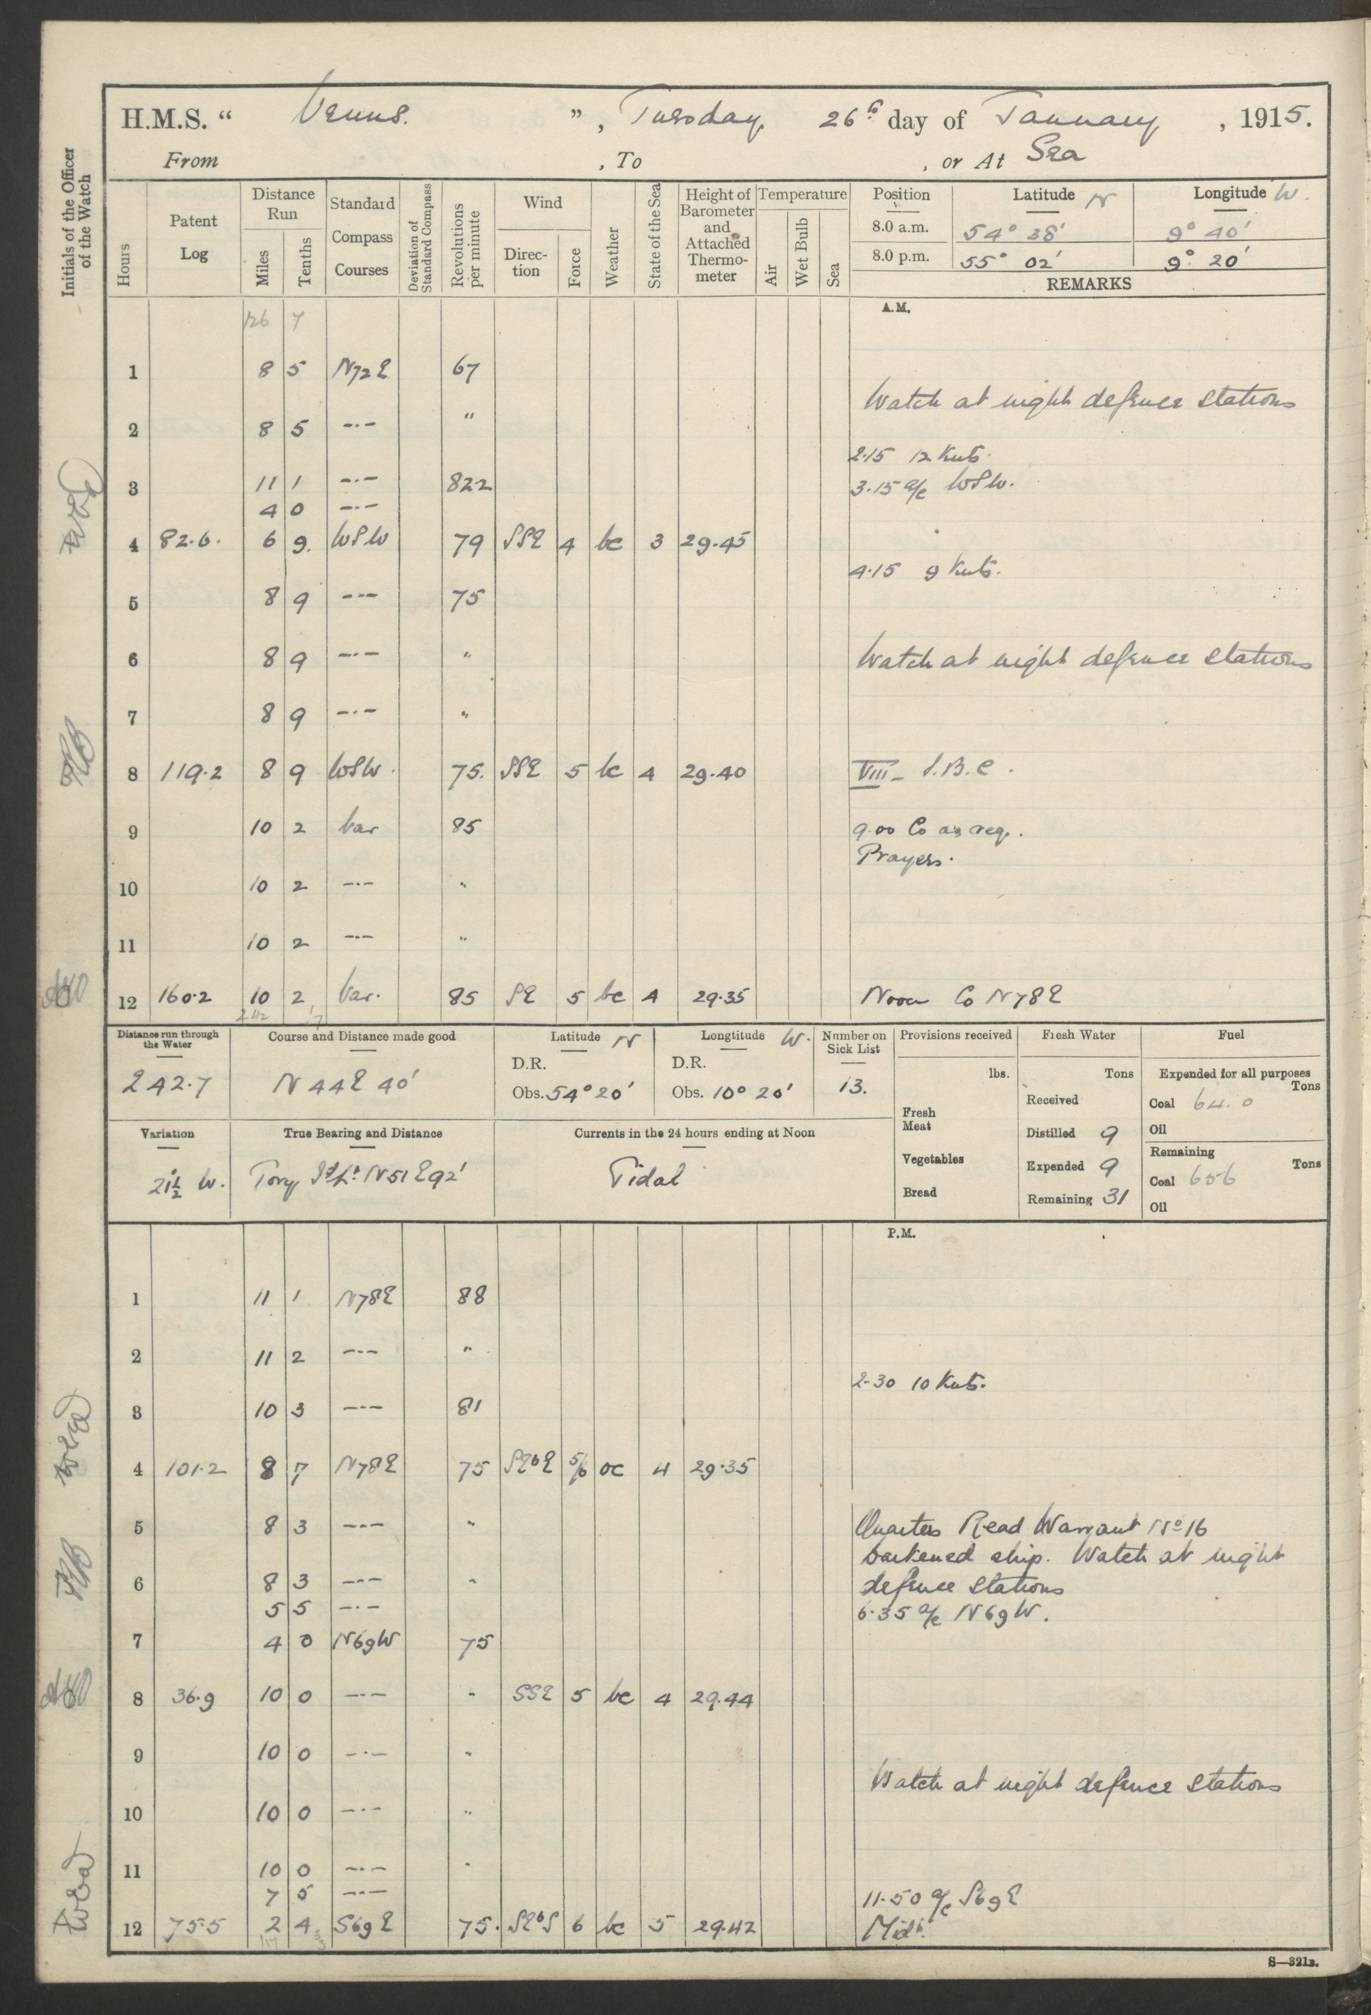 H.M.S. “ Venus. ” , Tuesday 26th day of January , 1915.
From , To , or At Sea
Initials of the Officer of the Watch
Hours
Patent Log
Distance Run
Miles
Tenths
Standard Compass Courses
Deviation of Standard Compass
Revolutions per minute
Wind
Direction
Force
Weather
State of the Sea
Height of Barometer and Attached Thermometer
Temperature
Air
Wet Bulb
Sea
Position Latitude N Longitude W.
8.0 a.m. 54° 38' 9° 40'
8.0 p.m. 55° 02' 9° 20'
REMARKS
A.M.
126 7
1 8 5 N72E 67
Watch at night defence stations
2 8 5 —·— "
2.15 12 Knts.
3 11 1 —·— 822 3.15 a/c WSW.
4 0 —·—
4 82.6. 6 9. WSW 79 SSE 4 bc 3 29.45
4.15 9 Knts.
5 8 9 —·— 75
6 8 9 —·— " Watch at night defence stations
7 8 9 —·— "
8 119.2 8 9 WSW. 75. SSE 5 bc 4 29.40 VIII— S.B.C.
9 10 2 Var 85 9.00 Co as req.
Prayers.
10 10 2 —·— "
11 10 2 —·— "
12 160.2 10 2 Var. 85 SE 5 bc 4 29.35 Noon Co N78E
242 7
Distance run through the Water
242.7
Course and Distance made good
N 44E 40'
Latitude N
D.R.
Obs. 54° 20'
Longtitude W.
D.R.
Obs. 10° 20'
Number on Sick List
13.
Provisions received
lbs.
Fresh Meat
Vegetables
Bread
Fresh Water
Tons
Received
Distilled 9
Expended 9
Remaining 31
Fuel
Expended for all purposes
Tons
Coal 64.0
Oil
Remaining
Tons
Coal 656
Oil
Variation
21½° W.
True Bearing and Distance
Tory Id Lt N51E 92'
Currents in the 24 hours ending at Noon
Tidal
P.M.
1 11 1 N78E 88
2 11 2 —·— "
2.30 10 Knts.
3 10 3 —·— 81
4 101.2 8 7 N78E 75 SEbE 5/6 oc 4 29.35
5 8 3 —·— " Quarters Read Warrant No 16
Darkened ship. Watch at night
6 8 3 —·— " defence stations
5 5 —·— 6.35 a/c N69W.
7 4 0 N69W 75
8 36.9 10 0 —·— " SSE 5 bc 4 29.44
9 10 0 —·— "
Watch at night defence stations
10 10 0 —·— "
11 10 0 —·— "
7 5 —·— 11.50 a/c S69E
12 75.5 2 4 S69E 75. SEbS 6 bc 5 29.42 Midt.
117 3
S—321B.